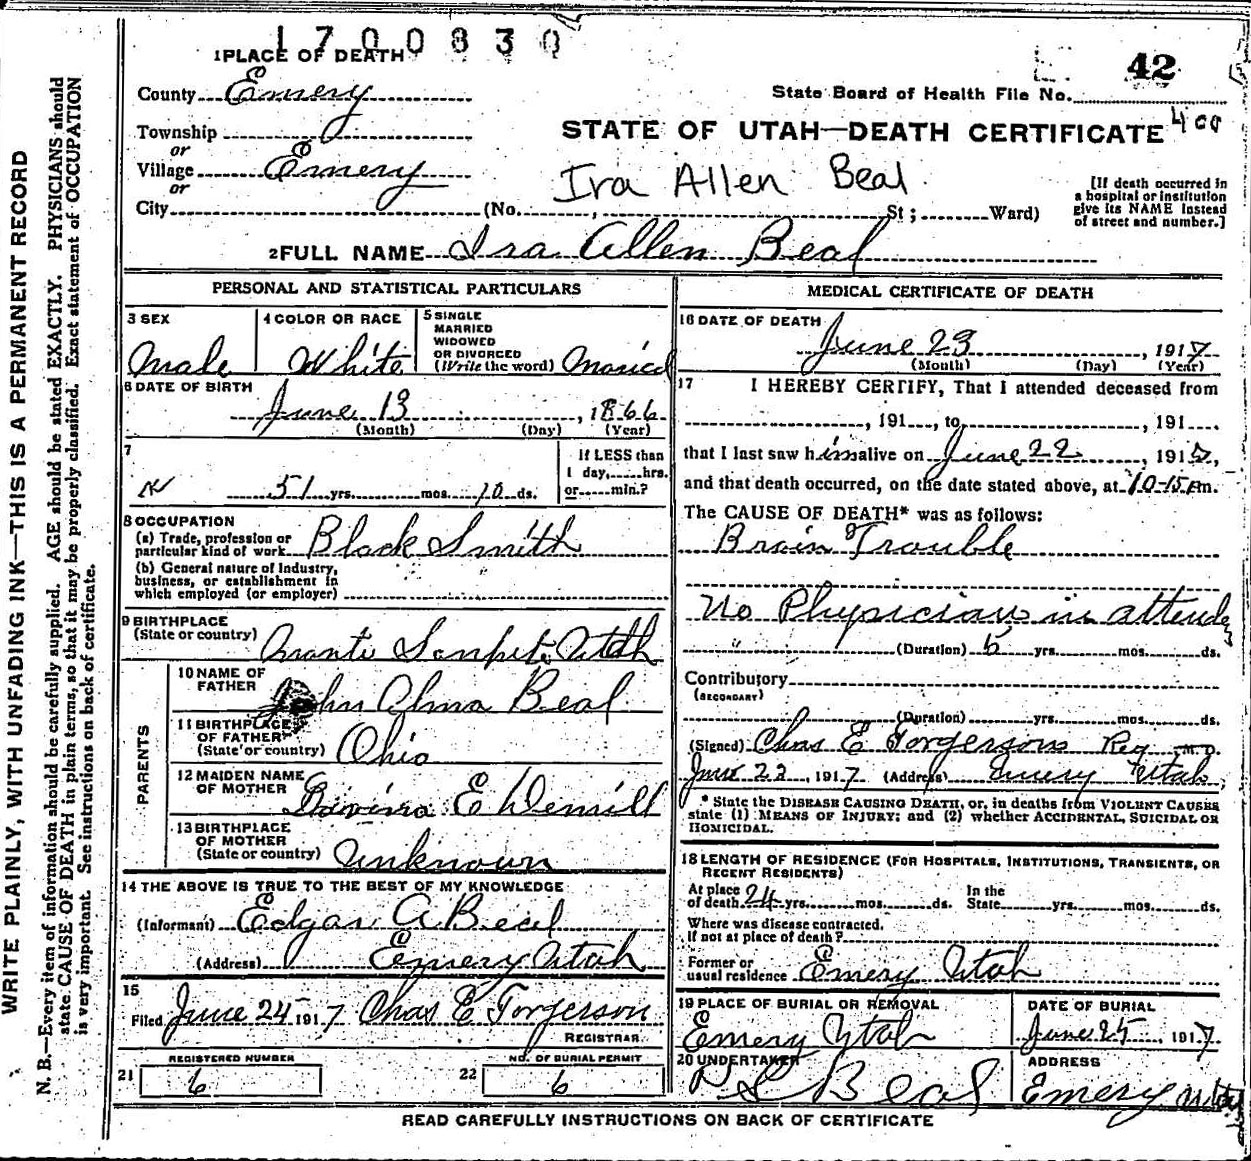 1700830
1 PLACE OF DEATH
42
County Emery
State Board of Health File No.
Township
or
STATE OF UTAH—DEATH CERTIFICATE 400
Village Emery
or
Ira Allen Beal
[If death occurred in
a hospital or institution
give its NAME instead
of street and number.]
City (No. , St; Ward)
2 FULL NAME Ira Allen Beal
PERSONAL AND STATISTICAL PARTICULARS
3 SEX
Male
4 COLOR OR RACE
White
5 SINGLE
MARRIED
WIDOWED
OR DIVORCED
(Write the word) Maried
6 DATE OF BIRTH
June 13, 1866
(Month) (Day) (Year)
7
51 yrs. mos. 10 ds.
If LESS than
1 day, hrs.
or min.?
8 OCCUPATION
(a) Trade, profession or
particular kind of work Black Smith
(b) General nature of industry,
business, or establishment in
which employed (or employer)
9 BIRTHPLACE
(State or country) Manti Sanpete Utah
PARENTS
10 NAME OF
FATHER John Alma Beal
11 BIRTHPLACE
OF FATHER
(State or country) Ohio
12 MAIDEN NAME
OF MOTHER E Demill
13 BIRTHPLACE
OF MOTHER
(State or country) Unknown
14 THE ABOVE IS TRUE TO THE BEST OF MY KNOWLEDGE
(Informant) Edgar A Beal
(Address) Emery Utah
15
Filed June 24 1917 Chas E Torgerson
REGISTRAR
REGISTERED NUMBER
21 6
NO. OF BURIAL PERMIT
22 6
MEDICAL CERTIFICATE OF DEATH
16 DATE OF DEATH
June 23, 1917
(Month) (Day) (Year)
17 I HEREBY CERTIFY, That I attended deceased from
, 191 , to , 191
that I last saw him alive on June 22, 1917,
and that death occurred, on the date stated above, at 10-15 Pm.
The CAUSE OF DEATH* was as follows:
Brain Trouble
No Physician in attend
(Duration) 5 yrs. mos. ds.
Contributory
(SECONDARY)
(Duration) yrs. mos. ds.
(Signed) Chas E Torgerson Reg M.D.
June 23, 1917 (Address) Emery Utah
* State the DISEASE CAUSING DEATH, or, in deaths from VIOLENT CAUSES
state (1) MEANS OF INJURY; and (2) whether ACCIDENTAL, SUICIDAL OR
HOMICIDAL.
18 LENGTH OF RESIDENCE (FOR HOSPITALS, INSTITUTIONS, TRANSIENTS, OR
RECENT RESIDENTS)
At place
of death 24 yrs. mos. ds.
In the
State yrs. mos. ds.
Where was disease contracted.
If not at place of death?
Former or
usual residence Emery Utah
19 PLACE OF BURIAL OR REMOVAL
Emery Utah
DATE OF BURIAL
June 25, 1917
20 UNDERTAKER
Beal
ADDRESS
Emery Utah
READ CAREFULLY INSTRUCTIONS ON BACK OF CERTIFICATE
WRITE PLAINLY, WITH UNFADING INK—THIS IS A PERMANENT RECORD
N. B.—Every item of information should be carefully supplied. AGE should be stated EXACTLY. PHYSICIANS should
state CAUSE OF DEATH in plain terms, so that it may be properly classified. Exact statement of OCCUPATION
is very important. See instructions on back of certificate.